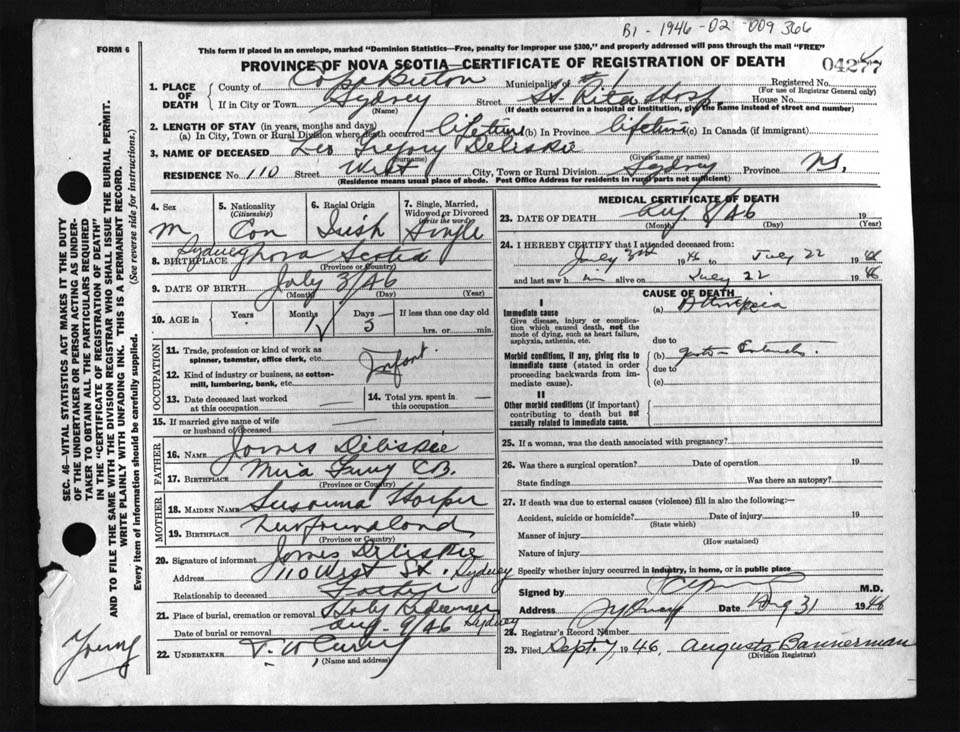 B1 - 1946 - 02 - 009 366
FORM 6
This form if placed in an envelope, marked "Dominion Statistics—Free, penalty for improper use $300," and properly addressed will pass through the mail "FREE"
PROVINCE OF NOVA SCOTIA—CERTIFICATE OF REGISTRATION OF DEATH 04277
1. PLACE OF DEATH County of Cape Breton Municipality of # 1 Registered No.
(For use of Registrar General only)
If in City or Town Sydney Street St Rita Hosp. House No.
(Name) (If death occurred in a hospital or institution, give the name instead of street and number)
2. LENGTH OF STAY (in years, months and days)
(a) In City, Town or Rural Division where death occurred lifetime (b) In Province lifetime (c) In Canada (if immigrant)
3. NAME OF DECEASED Leo Gregory Deliskie
(Surname) (Given name or names)
RESIDENCE No. 110 Street West City, Town or Rural Division Sydney Province N.S.
(Residence means usual place of abode. Post Office Address for residents in rural parts not sufficient)
4. Sex M
5. Nationality (Citizenship) Can
6. Racial Origin Irish
7. Single, Married, Widowed or Divorced (write the word) Single
8. BIRTHPLACE Sydney Nova Scotia
(Province or Country)
9. DATE OF BIRTH July 3/46
(Month) (Day) (Year)
10. AGE in Years Months 1 Days 5 If less than one day old
hrs. or min.
OCCUPATION
11. Trade, profession or kind of work as spinner, teamster, office clerk, etc. Infant.
12. Kind of industry or business, as cotton-mill, lumbering, bank, etc.
13. Date deceased last worked at this occupation
14. Total yrs. spent in this occupation
15. If married give name of wife or husband of deceased
FATHER
16. NAME James Deliskie
17. BIRTHPLACE Mira Ferry C.B.
(Province or Country)
MOTHER
18. MAIDEN NAME Susanna Harper
19. BIRTHPLACE Newfoundland
(Province or Country)
20. Signature of informant James Deliskie
Address 110 West St. Sydney
Relationship to deceased Father
21. Place of burial, cremation or removal Holy Redeemer
Date of burial or removal Aug. 9/46 Sydney
22. UNDERTAKER
(Name and address)
MEDICAL CERTIFICATE OF DEATH
23. DATE OF DEATH Aug 8/46 19
(Month) (Day) (Year)
24. I HEREBY CERTIFY that I attended deceased from
July 3rd 1946 to July 22 1946
and last saw h im alive on July 22 1946
CAUSE OF DEATH
I
Immediate cause
Give disease, injury or complication which caused death, not the mode of dying, such as heart failure, asphyxia, asthenia, etc.
(a)
due to
Morbid conditions, if any, giving rise to immediate cause (stated in order proceeding backwards from immediate cause).
(b)
due to
(c)
II
Other morbid conditions (if important) contributing to death but not causally related to immediate cause.
25. If a woman, was the death associated with pregnancy?
26. Was there a surgical operation? Date of operation 19
State findings Was there an autopsy?
27. If death was due to external causes (violence) fill in also the following:—
Accident, suicide or homicide? Date of injury 19
(State which)
Manner of injury
(How sustained)
Nature of injury
Specify whether injury occurred in industry, in home, or in public place
Signed by M.D.
Address Sydney Date Aug 31 1946
28. Registrar's Record Number
29. Filed Sept. 7, 1946. Augusta Bannerman
(Division Registrar)
SEC. 46—VITAL STATISTICS ACT MAKES IT THE DUTY
OF THE UNDERTAKER OR PERSON ACTING AS UNDER-
TAKER TO OBTAIN ALL THE PARTICULARS REQUIRED
IN THE "CERTIFICATE OF REGISTRATION OF DEATH"
AND TO FILE THE SAME WITH THE DIVISION REGISTRAR WHO SHALL ISSUE THE BURIAL PERMIT.
WRITE PLAINLY WITH UNFADING INK. THIS IS A PERMANENT RECORD.
Every item of information should be carefully supplied. (See reverse side for instructions.)
Young